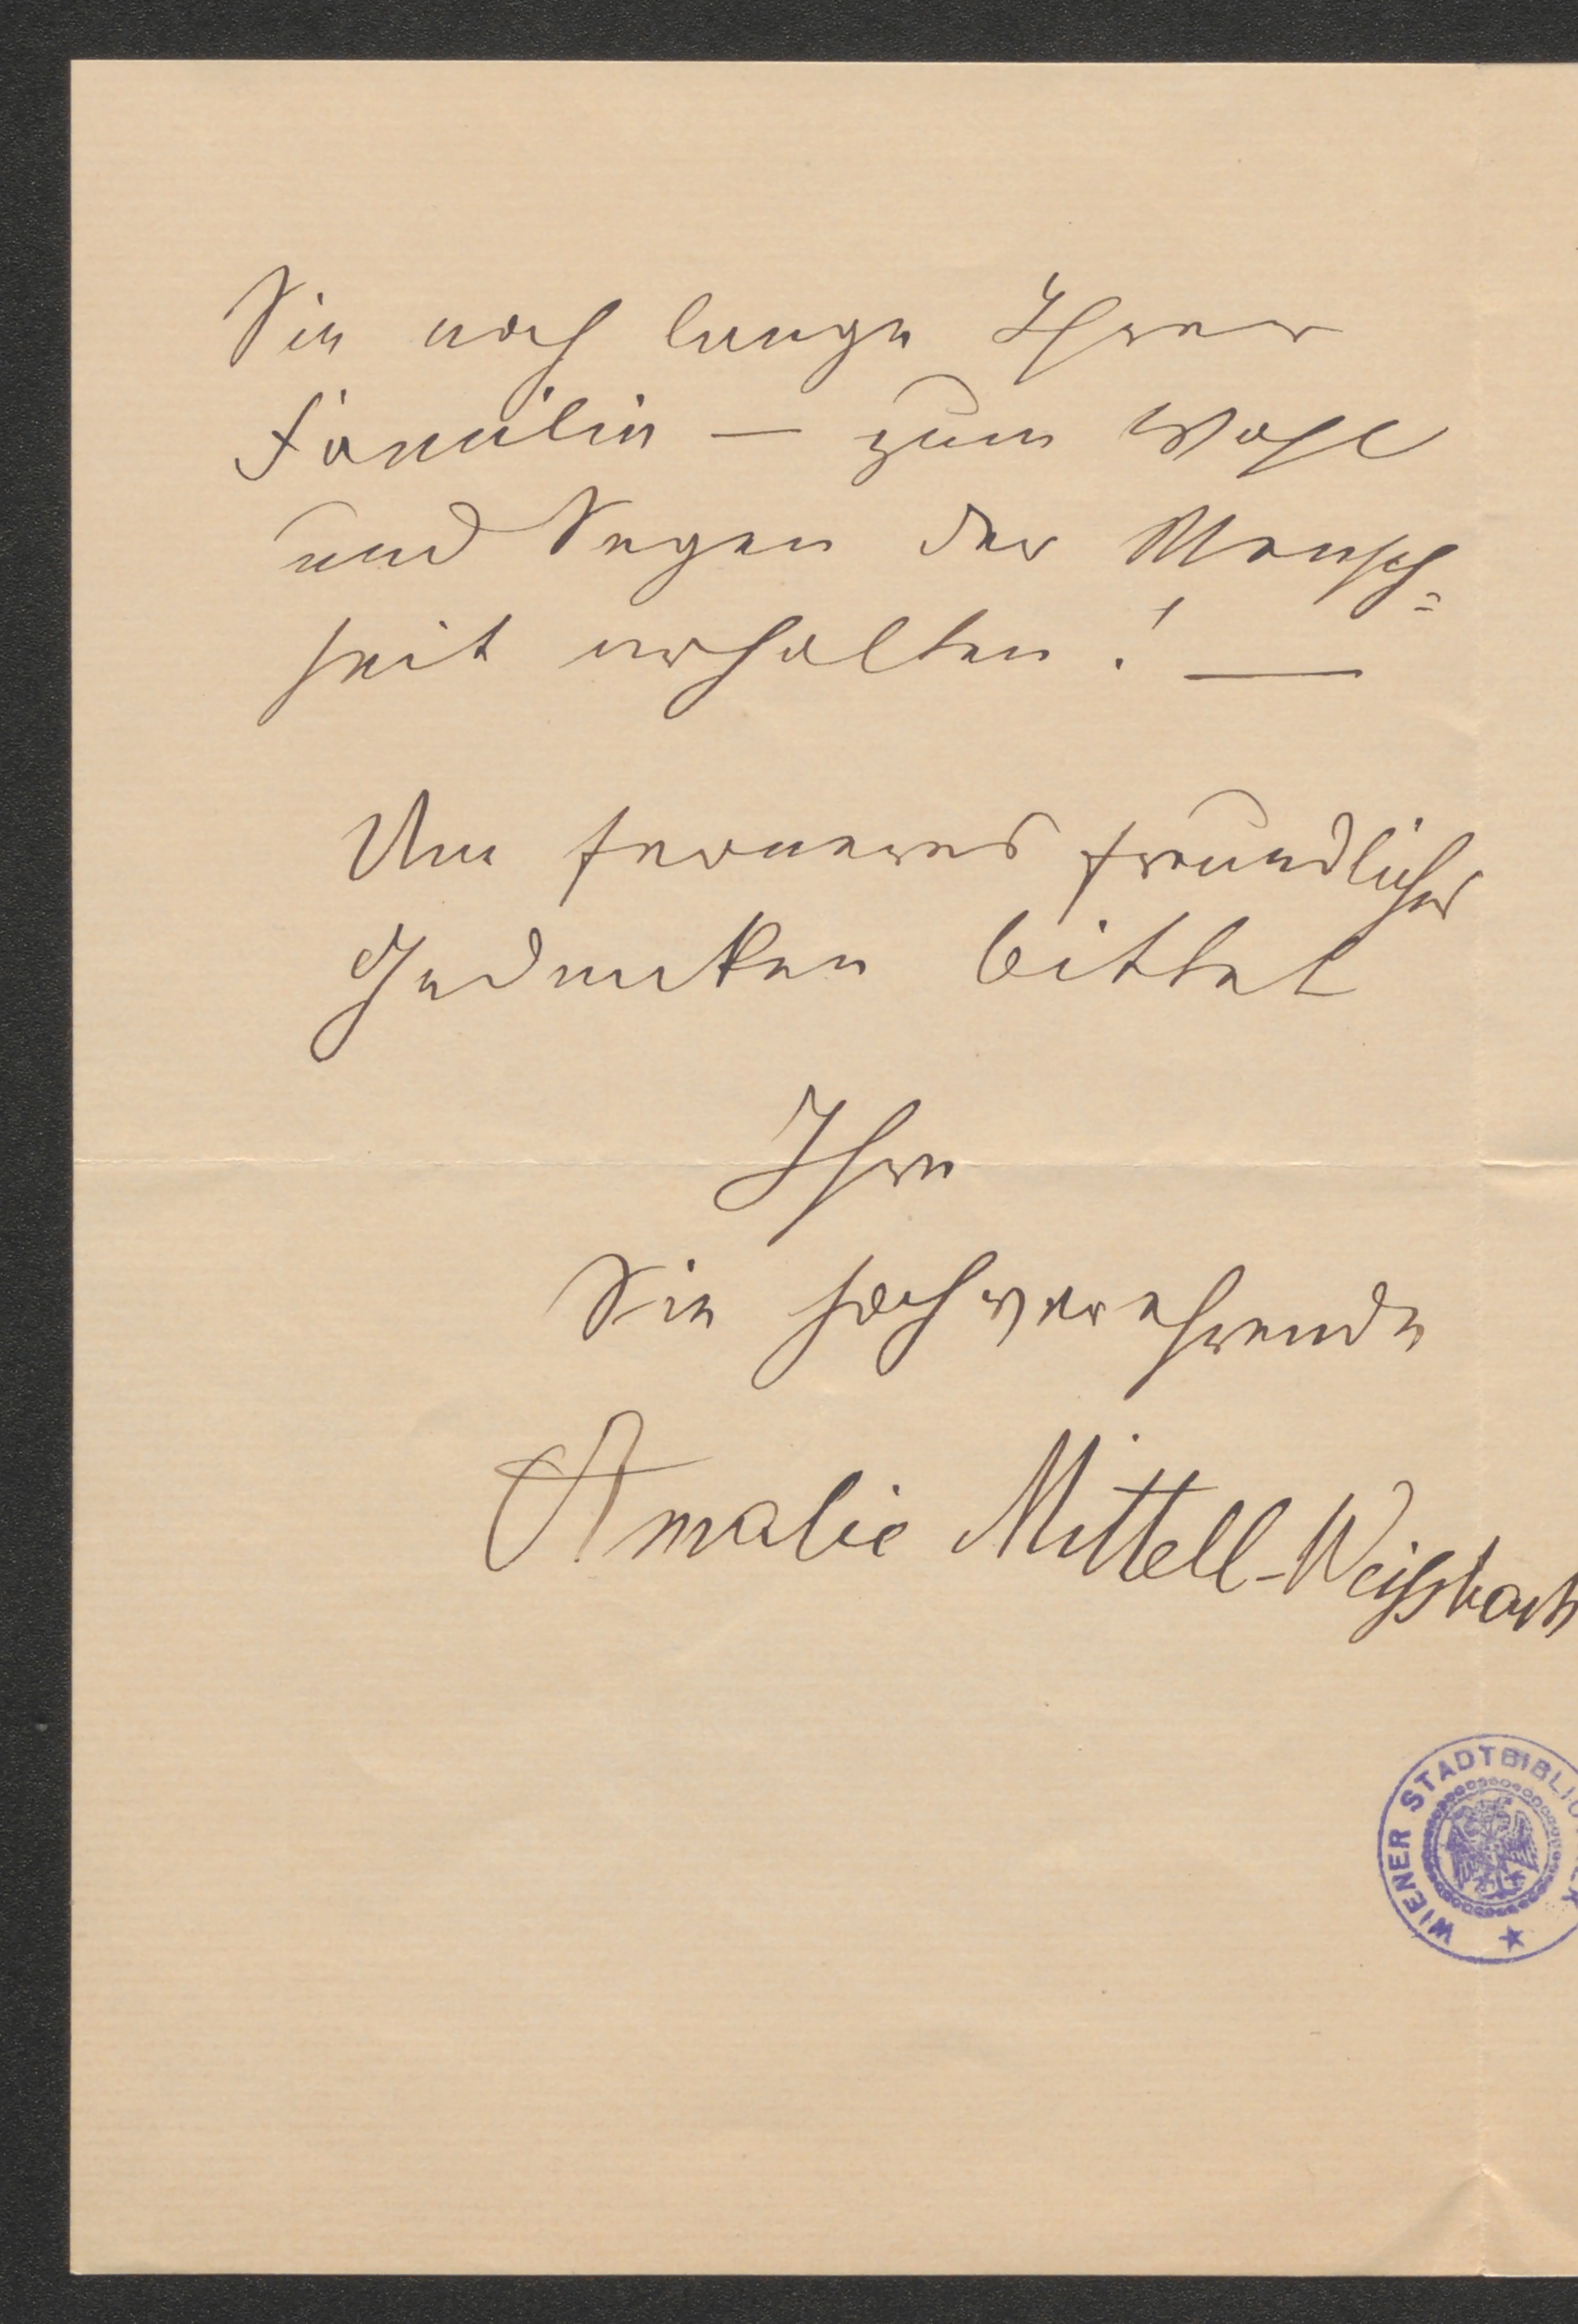 Sie noch lange Ihrer
Familie — zum Wohl
und Segen der Mensch=
heit erhalten! —
Um ferneres freundliches
Gedenken bittet
Ihre
Sie hochverehrende
Amalie Mittell-Weißbach
WIENER STADTBIBLIOTHEK